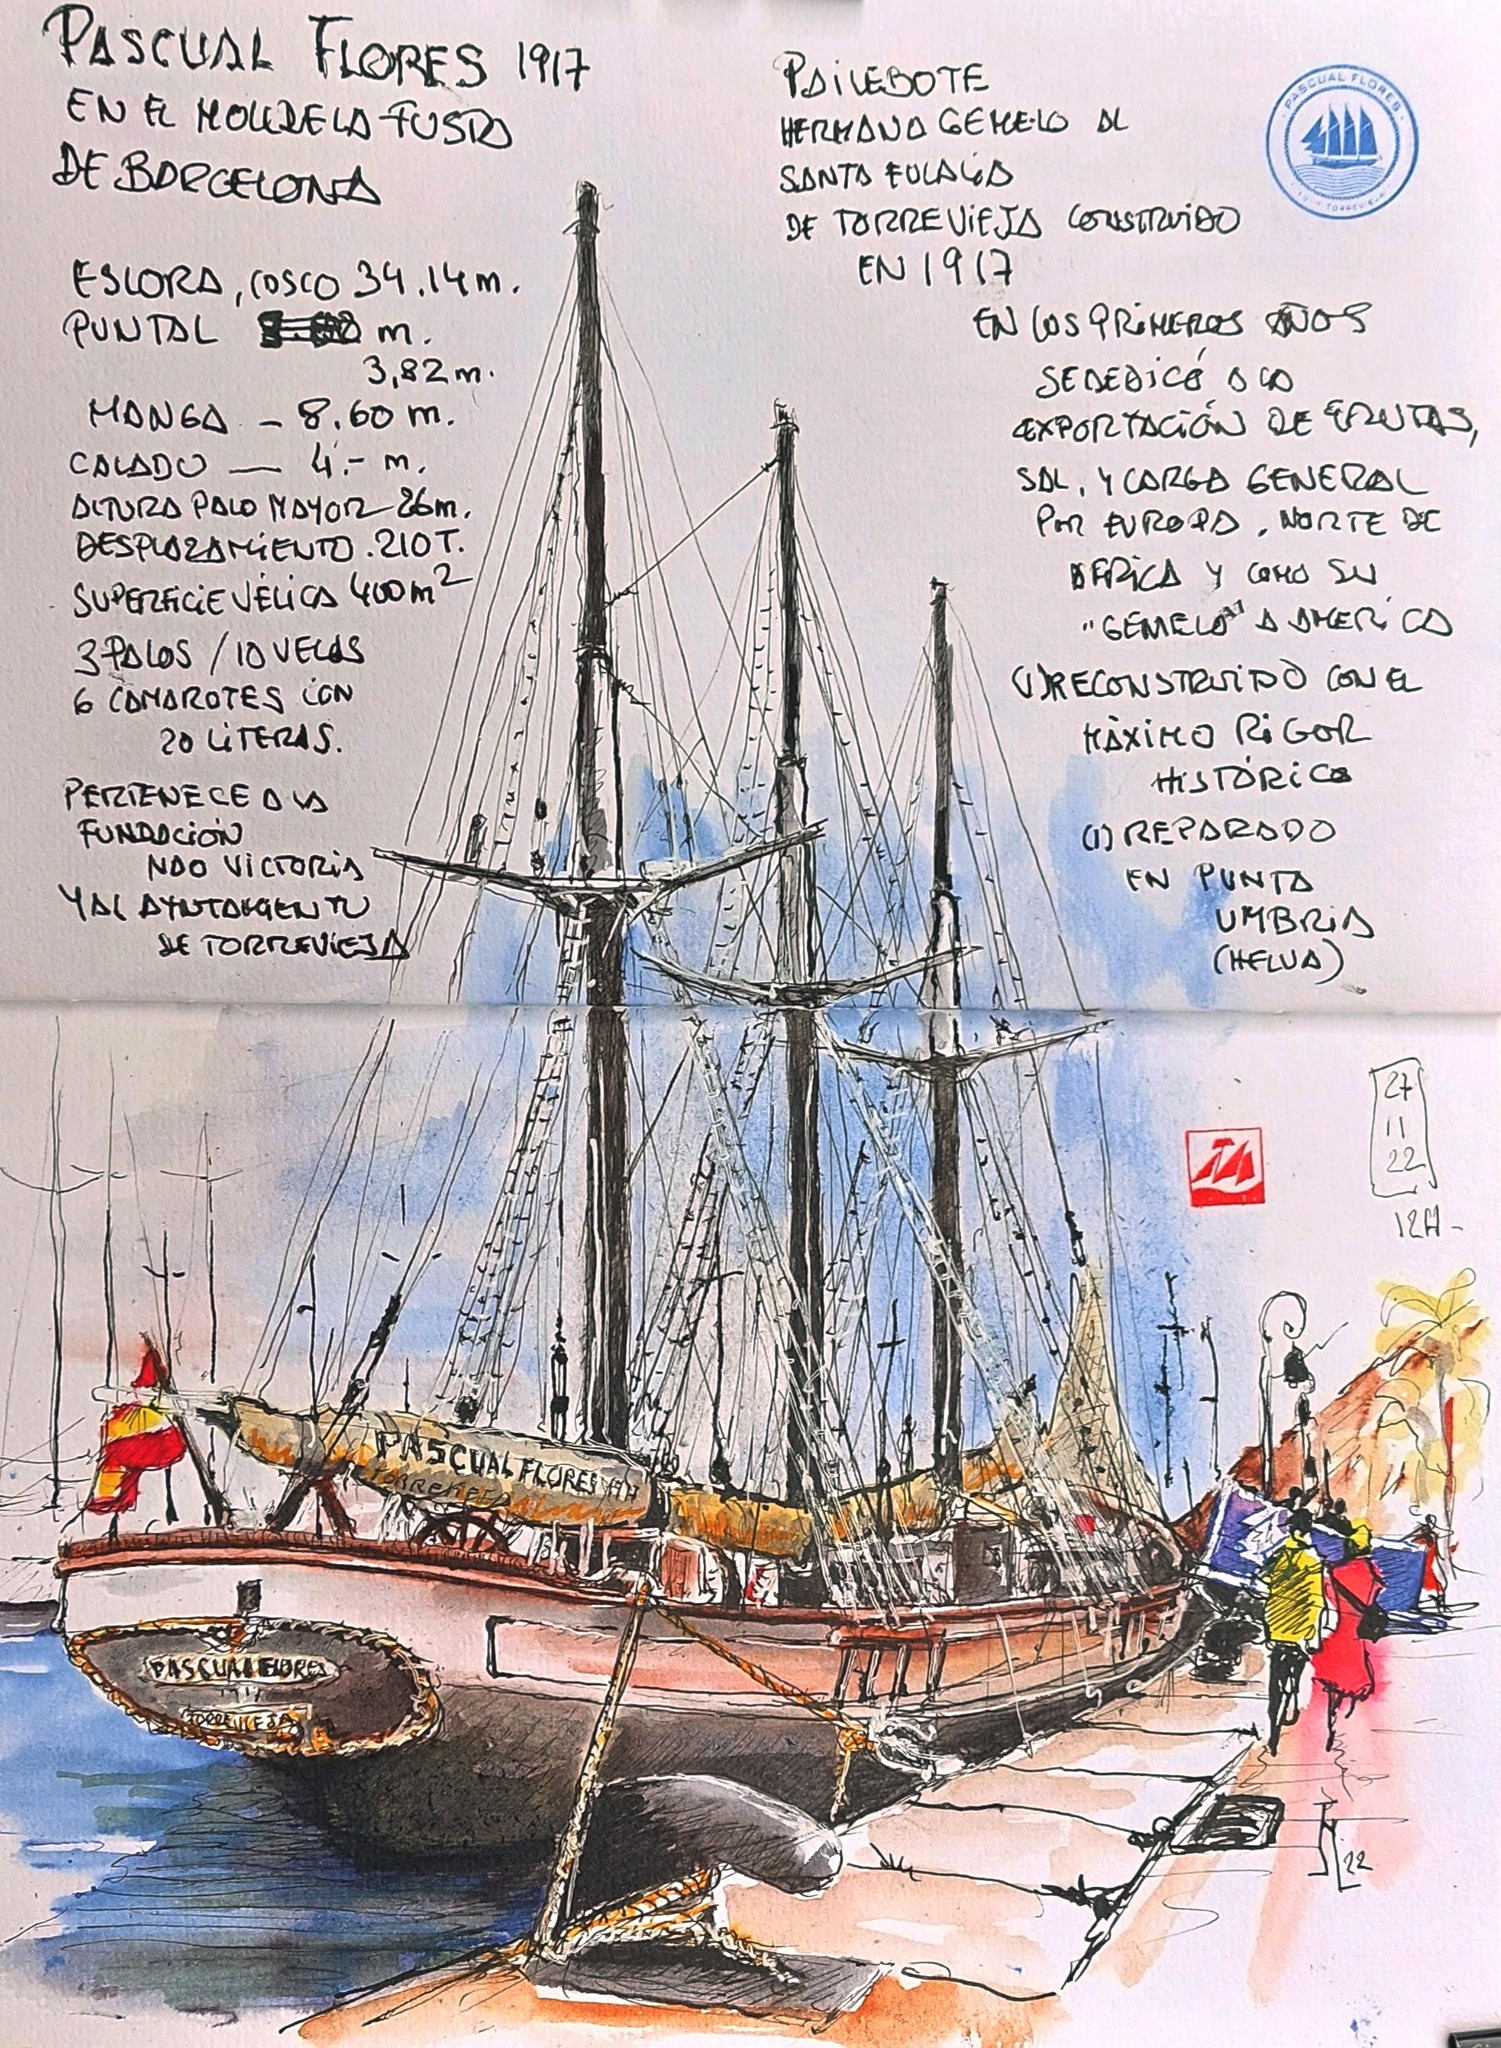 PASCUAL FLORES 1917
EN EL MOLL DE LA FUSTA
DE BARCELONA
ESLORA, CASCO 34.14 m.
PUNTAL m.
3,82 m.
MANGA - 8.60 m.
CALADO — 4.- m.
ALTURA PALO MAYOR 26 m.
DESPLAZAMIENTO. 210 T.
SUPERFICIE VÉLICA 400 m²
3 PALOS / 10 VELAS
6 CAMAROTES CON
20 LITERAS.
PERTENECE A LA
FUNDACIÓN
NAO VICTORIA
Y AL AYUNTAMIENTO
DE TORREVIEJA
PAILEBOTE
HERMANO GEMELO AL
SANTA EULALIA
DE TORREVIEJA CONSTRUIDO
EN 1917
EN LOS PRIMEROS AÑOS
SE DEDICÓ A LA
EXPORTACIÓN DE FRUTAS,
SAL, Y CARGA GENERAL
POR EUROPA, NORTE DE
AFRICA Y COMO SU
"GEMELO" A AMERICA
(1) RECONSTRUIDO CON EL
MÀXIMO RIGOR
HISTÓRICO
(1) REPARADO
EN PUNTA
UMBRIA
(HELVA)
PASCUAL FLORES
1917 TORREVIEJA
27
11
22
12H-
PASCUAL FLORES
TORREVIEJA
PASCUAL FLORES
TORREVIEJA
22